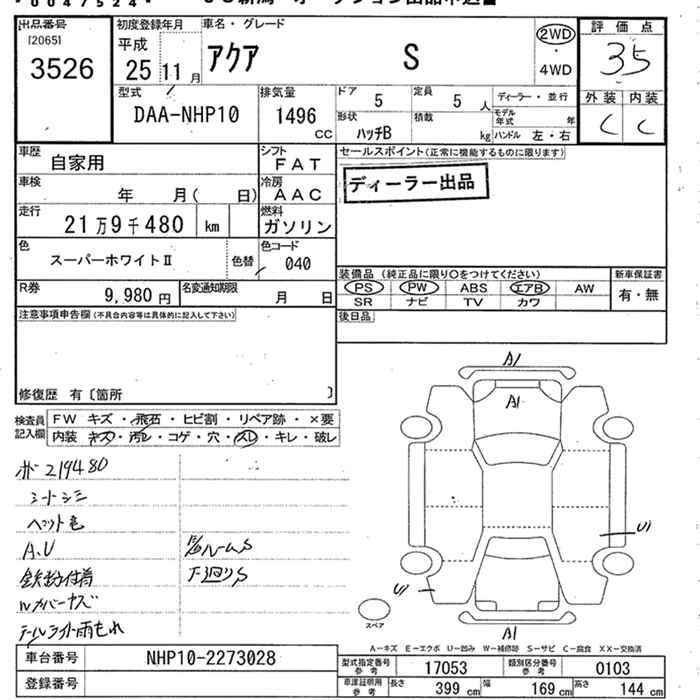 出品番号
[2065]
3526
初度登録年月
平成
25 11 月
車名・グレード
アクア S
2WD
4WD
評価点
3.5
外装 内装
C C
型式
DAA-NHP10
排気量
1496
CC
ドア
5
定員
5 人
形状
ハッチB
積載
kg
ディーラー・並行
モデル年式 年
ハンドル 左・右
車歴
自家用
シフト
FAT
車検
年 月( 日)
冷房
AAC
走行
21万9千480 km
燃料
ガソリン
色
スーパーホワイトⅡ
色替
色コード
040
R券
9,980 円
名変通知期限
月 日
セールスポイント(正常に機能するものに限ります)
ディーラー出品
装備品(純正品に限り○をつけてください)
PS PW ABS エアB AW
SR ナビ TV カワ
新車保証書
有・無
後日品
注意事項申告欄(不具合内容等は具体的に記入して下さい)
修復歴 有〔箇所 〕
検査員記入欄
FW キズ・飛石・ヒビ割・リペア跡・×要
内装 キズ・汚レ・コゲ・穴・スレ・キレ・破レ
219480
シートシミ
ペット毛
A.U
鉄粉付着
テールライト雨もれ
下廻りS
A1
A1
U1
U1
A1
スペア
A－キズ E－エクボ U－凹み W－補修跡 S－サビ C－腐食 XX－交換済
車台番号
NHP10-2273028
登録番号
型式指定番号 参考
17053
類別区分番号 参考
0103
車庫証明用 参考
長さ 399 cm
幅 169 cm
高さ 144 cm